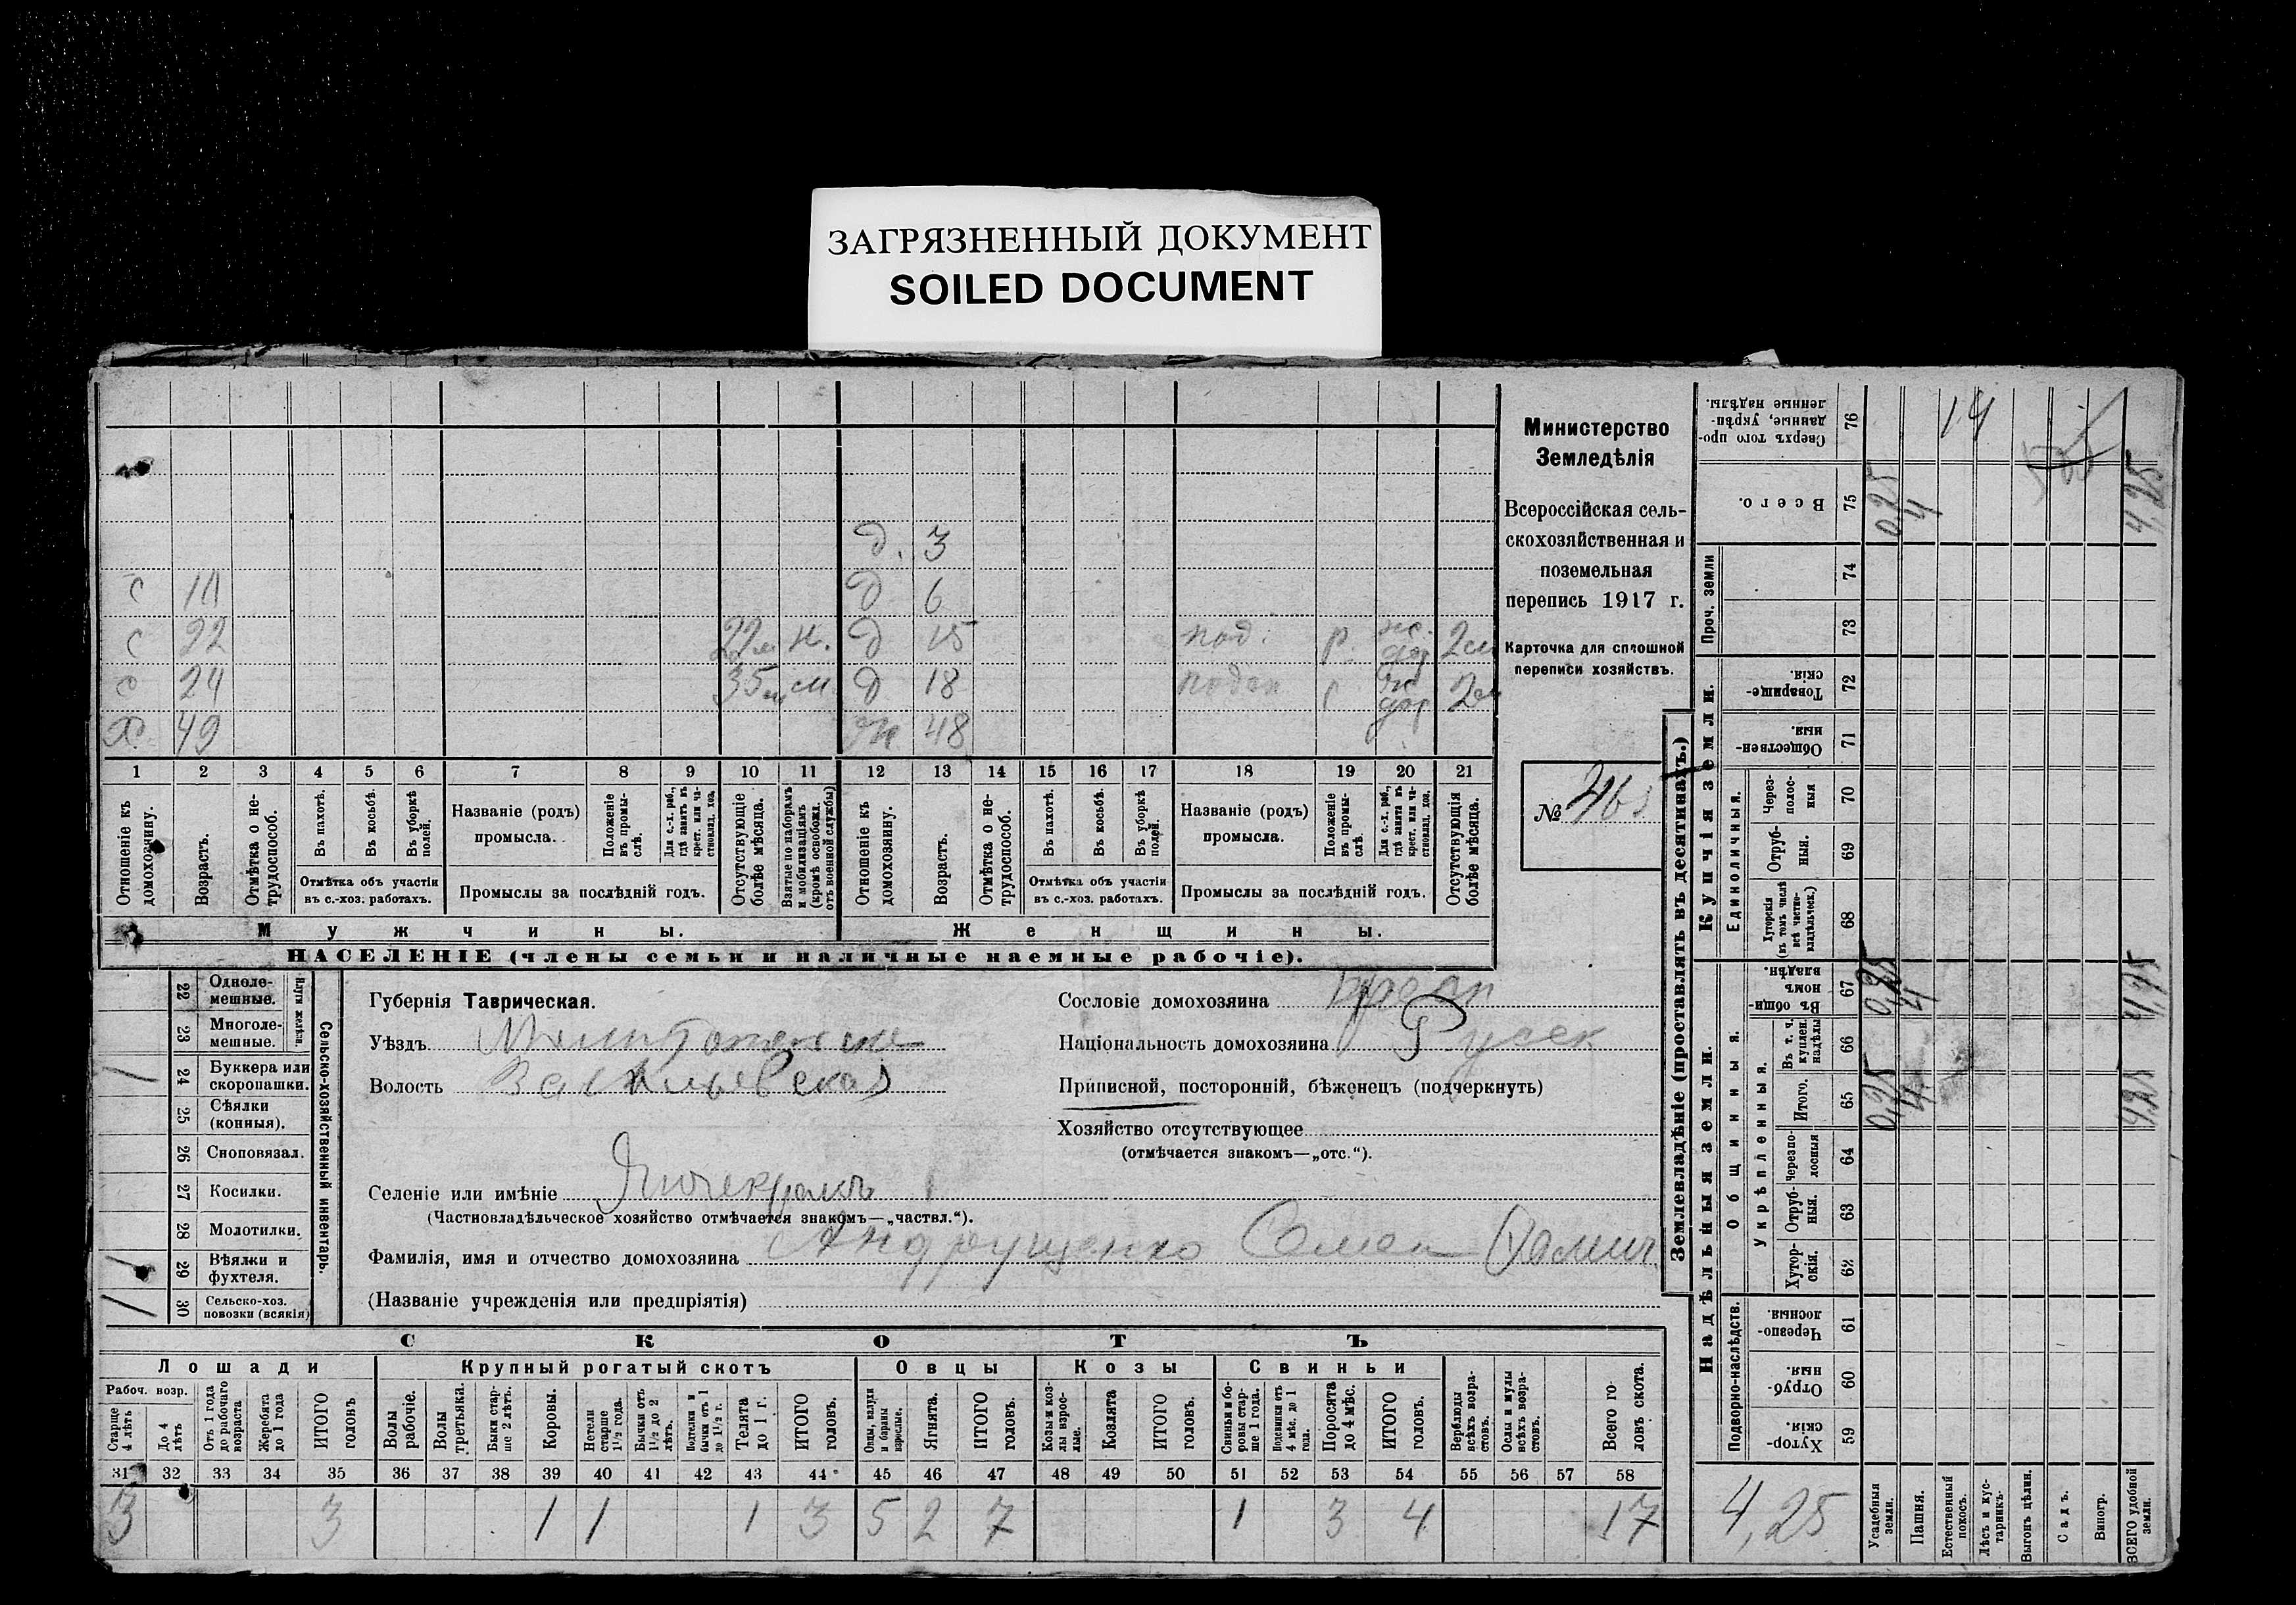 ЗАГРЯЗНЕННЫЙ ДОКУМЕНТ
SOILED DOCUMENT
д. 3
с д 6
с 22 22м н. д 15 под. р. 2м
с 24 35м см д 18 2м
х 49 ж 48
1 2 3 4 5 6 7 8 9 10 11 12 13 14 15 16 17 18 19 20 21
Отношеніе къ домохозяину.
Возрастъ.
Отмѣтка о нетрудоспособ.
Въ пахотѣ.
Въ косьбѣ.
Въ уборкѣ полей.
Отмѣтка объ участіи въ с.-хоз. работахъ.
Названіе (родъ) промысла.
Положеніе въ промыслѣ.
Для с.-х. раб., гдѣ занятъ въ крест. или частновлад. хоз.
Промыслы за послѣдній годъ.
Отсутствующіе болѣе мѣсяца.
Взятые по наборамъ и мобилизаціямъ (кромѣ освобожд. отъ военной службы)
Отношеніе къ домохозяину.
Возрастъ.
Отмѣтка о нетрудоспособ.
Въ пахотѣ.
Въ косьбѣ.
Въ уборкѣ полей.
Отмѣтка объ участіи въ с.-хоз. работахъ.
Названіе (родъ) промысла.
Положеніе въ промыслѣ.
Для с.-х. раб., гдѣ занятъ въ крест. или частновлад. хоз.
Промыслы за послѣдній годъ.
Отсутствующія болѣе мѣсяца.
Мужчины. Женщины.
НАСЕЛЕНІЕ (члены семьи и наличные наемные рабочіе).
Министерство
Земледѣлія
Всероссійская сель-
скохозяйственная и
поземельная
перепись 1917 г.
Карточка для сплошной
переписи хозяйствъ.
№
22 Одноле-мешные.
23 Многоле-мешные.
Плуги желѣзн.
24 Буккера или скоропашки. /
25 Сѣялки (конныя).
26 Сноповязал.
27 Косилки.
28 Молотилки.
29 Вѣялки и фухтеля. /
30 Сельско-хоз. повозки (всякія) /
Сельско-хозяйственный инвентарь.
Губернія Таврическая.
Уѣздъ
Волость Васильевская
Селеніе или имѣніе Янчекракъ
(Частновладѣльческое хозяйство отмѣчается знакомъ—„частвл.“).
Фамилія, имя и отчество домохозяина Андрущенко Семен Фомич
(Названіе учрежденія или предпріятія)
Сословіе домохозяина
Національность домохозяина Русск
Приписной, посторонній, бѣженецъ (подчеркнуть)
Хозяйство отсутствующее
(отмѣчается знакомъ—„отс.“).
СКОТЪ
Лошади Крупный рогатый скотъ Овцы Козы Свиньи
Рабоч. возр.
Старше 4 лѣтъ
До 4 лѣтъ
Отъ 1 года до рабочаго возраста
Жеребята до 1 года
ИТОГО головъ
Волы рабочіе.
Волы третьяки.
Быки старше 2 лѣтъ.
Коровы.
Нетели старше 1½ года.
Бычки отъ 1½ до 2 лѣтъ.
Подтелки и бычки отъ 1 до 1½ г.
Телята до 1 г.
ИТОГО головъ.
Овцы, валухи и бараны взрослые.
Ягнята.
ИТОГО головъ.
Козы и козлы взрослые.
Козлята
ИТОГО головъ.
Свиньи и боровы старше 1 года.
Подсвинки отъ 4 мѣс. до 1 года.
Поросята до 4 мѣс.
ИТОГО головъ.
Верблюды всѣхъ возрастовъ.
Ослы и мулы всѣхъ возрастовъ.
Всего головъ скота.
31 32 33 34 35 36 37 38 39 40 41 42 43 44 45 46 47 48 49 50 51 52 53 54 55 56 57 58
3 3 1 1 1 3 5 2 7 1 3 4 17
Землевладѣніе (проставлять въ десятинахъ.)
Купчія земли.
Надѣльныя земли.
76 Сверхъ того проданные, укрѣпленные надѣлы. 14
75 Всего. 0,25 4 4,25
Проч. земли
74
73
72 Товарищескія.
71 Общественныя.
Единоличныя.
70 Через-полосныя
69 Отрубныя.
68 Хуторскія (въ томъ числѣ всѣ частновладѣльческ.)
Общинныя.
67 Въ общинномъ владѣн. 0,25 4 4,25
Укрѣпленныя.
66 Въ т. ч. куплен. надѣлы
65 Итого. 0,25 4 4,25
64 Черезполосныя
63 Отрубныя.
62 Хуторскія.
Подворно-наслѣдств.
61 Черезполосныя
60 Отрубныя.
59 Хуторскія
4,25
Усадебныя земли.
Пашня.
Естественный покосъ.
Лѣсъ и кустарникъ.
Выгонъ цѣлин.
Садъ.
Виногр.
ВСЕГО удобной земли.